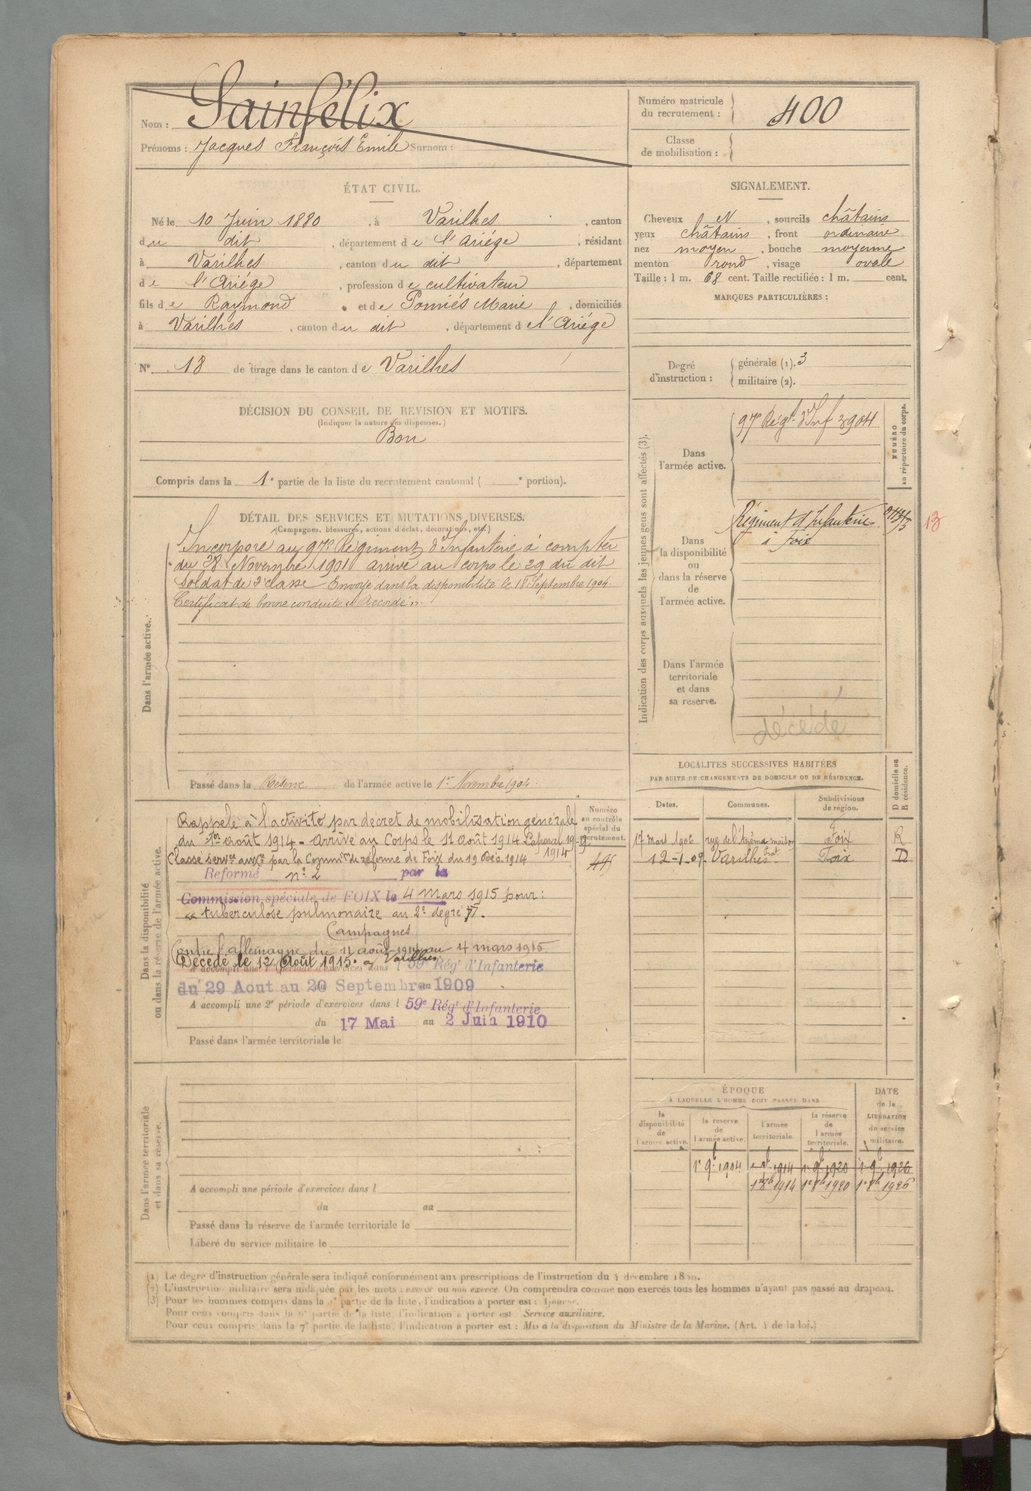 Nom : Sainfélix
Prénoms : Jacques François Emile Surnom :
Numéro matricule
du recrutement : 400
Classe
de mobilisation :
ÉTAT CIVIL.
Né le 10 Juin 1880, à Varilhes, canton
du dit, département de l'Ariége, résidant
à Varilhes, canton du dit, département
de l'Ariége, profession de cultivateur
fils de Raymond et de Ponniés Marie, domiciliés
à Varilhes, canton du dit, département de l'Ariége
N° 18 de tirage dans le canton de Varilhes
SIGNALEMENT.
Cheveux N, sourcils châtains
yeux châtains, front ordinaire
nez moyen, bouche moyenne
menton rond, visage ovale
Taille : 1 m. 68 cent. Taille rectifiée : 1 m. cent.
MARQUES PARTICULIÈRES :
Degré
d'instruction :
générale (1). 3
militaire (2).
DÉCISION DU CONSEIL DE REVISION ET MOTIFS.
(Indiquer la nature des dispenses.)
Bon
Compris dans la 1e partie de la liste du recrutement cantonal ( e portion).
DÉTAIL DES SERVICES ET MUTATIONS DIVERSES.
(Campagnes, blessures, actions d'éclat, décorations, etc.)
Dans l'armée active.
Incorporé au 97e Régiment d'Infanterie à compter
du 28 Novembre 1901 arrivé au corps le 29 du dit
soldat de 2e classe Envoyé dans la disponibilité le 18 Septembre 1904
Certificat de bonne conduite Accordé
Passé dans la Réserve de l'armée active le 1er Novembre 1904
Indication des corps auxquels les jeunes gens sont affectés (3).
NUMÉRO
au répertoire du corps.
Dans
l'armée active.
97e Régt d'Inf 3904
Dans
la disponibilité
ou
dans la réserve
de
l'armée active.
Régiment d'Infanterie
à Foix
13
Dans l'armée
territoriale
et dans
sa reserve.
décédé
LOCALITÉS SUCCESSIVES HABITÉES
PAR SUITE DE CHANGEMENTS DE DOMICILE OU DE RÉSIDENCE.
D domicile ou
R résidence.
Dates.
Communes.
Subdivisions
de région.
Foix R
12-1-09 Varilhes Foix D
Dans la disponibilité
ou dans la réserve de l'armée active.
Numéro
au contrôle
spécial du
recrutement.
Rappelé à l'activité par décret de mobilisation générale
du 1er août 1914 - Arrivé au Corps le 11 août 1914
Classé servce auxre par la Common de réforme de Foix du 19 Déc. 1914
Réformé n° 2 par la
Commission spéciale de FOIX le 4 Mars 1915 pour :
« tuberculose pulmonaire au 2e degré ».
Campagnes
Contre l'Allemagne du 11 août 1914 au 4 mars 1915
Décédé le 12 Août 1915. à Varilhes
A accompli une 1e période d'exercices dans l 59e Régt d'Infanterie
du 29 Aout au 20 Septembre 1909
A accompli une 2e période d'exercices dans l 59e Régt d'Infanterie
du 17 Mai au 2 Juin 1910
Passé dans l'armée territoriale le
Dans l'armée territoriale
et dans sa réserve.
A accompli une période d'exercices dans l
du au
Passé dans la réserve de l'armée territoriale le
Libéré du service militaire le
ÉPOQUE
A LAQUELLE L'HOMME DOIT PASSER DANS
DATE
de la
LIBÉRATION
du service
militaire.
la
disponibilité
de
l'armée active.
la réserve
de
l'armée active.
l'armée
territoriale.
la réserve
de
l'armée
territoriale.
1er 9b 1904 1914 1er 9b 1920 1er 9b 1926
1914 1920 1926
(1) Le degré d'instruction générale sera indiqué conformément aux prescriptions de l'instruction du 4 décembre 1889.
(2) L'instruction militaire sera indiquée par les mots : exercé ou non exercé. On comprendra comme non exercés tous les hommes n'ayant pas passé au drapeau.
(3) Pour les hommes compris dans la partie de la liste, l'indication à porter est :
Pour ceux compris dans la 6e partie de la liste, l'indication à porter est : Service auxiliaire.
Pour ceux compris dans la 7e partie de la liste, l'indication à porter est : Mis à la disposition du Ministre de la Marine. (Art. 4 de la loi.)